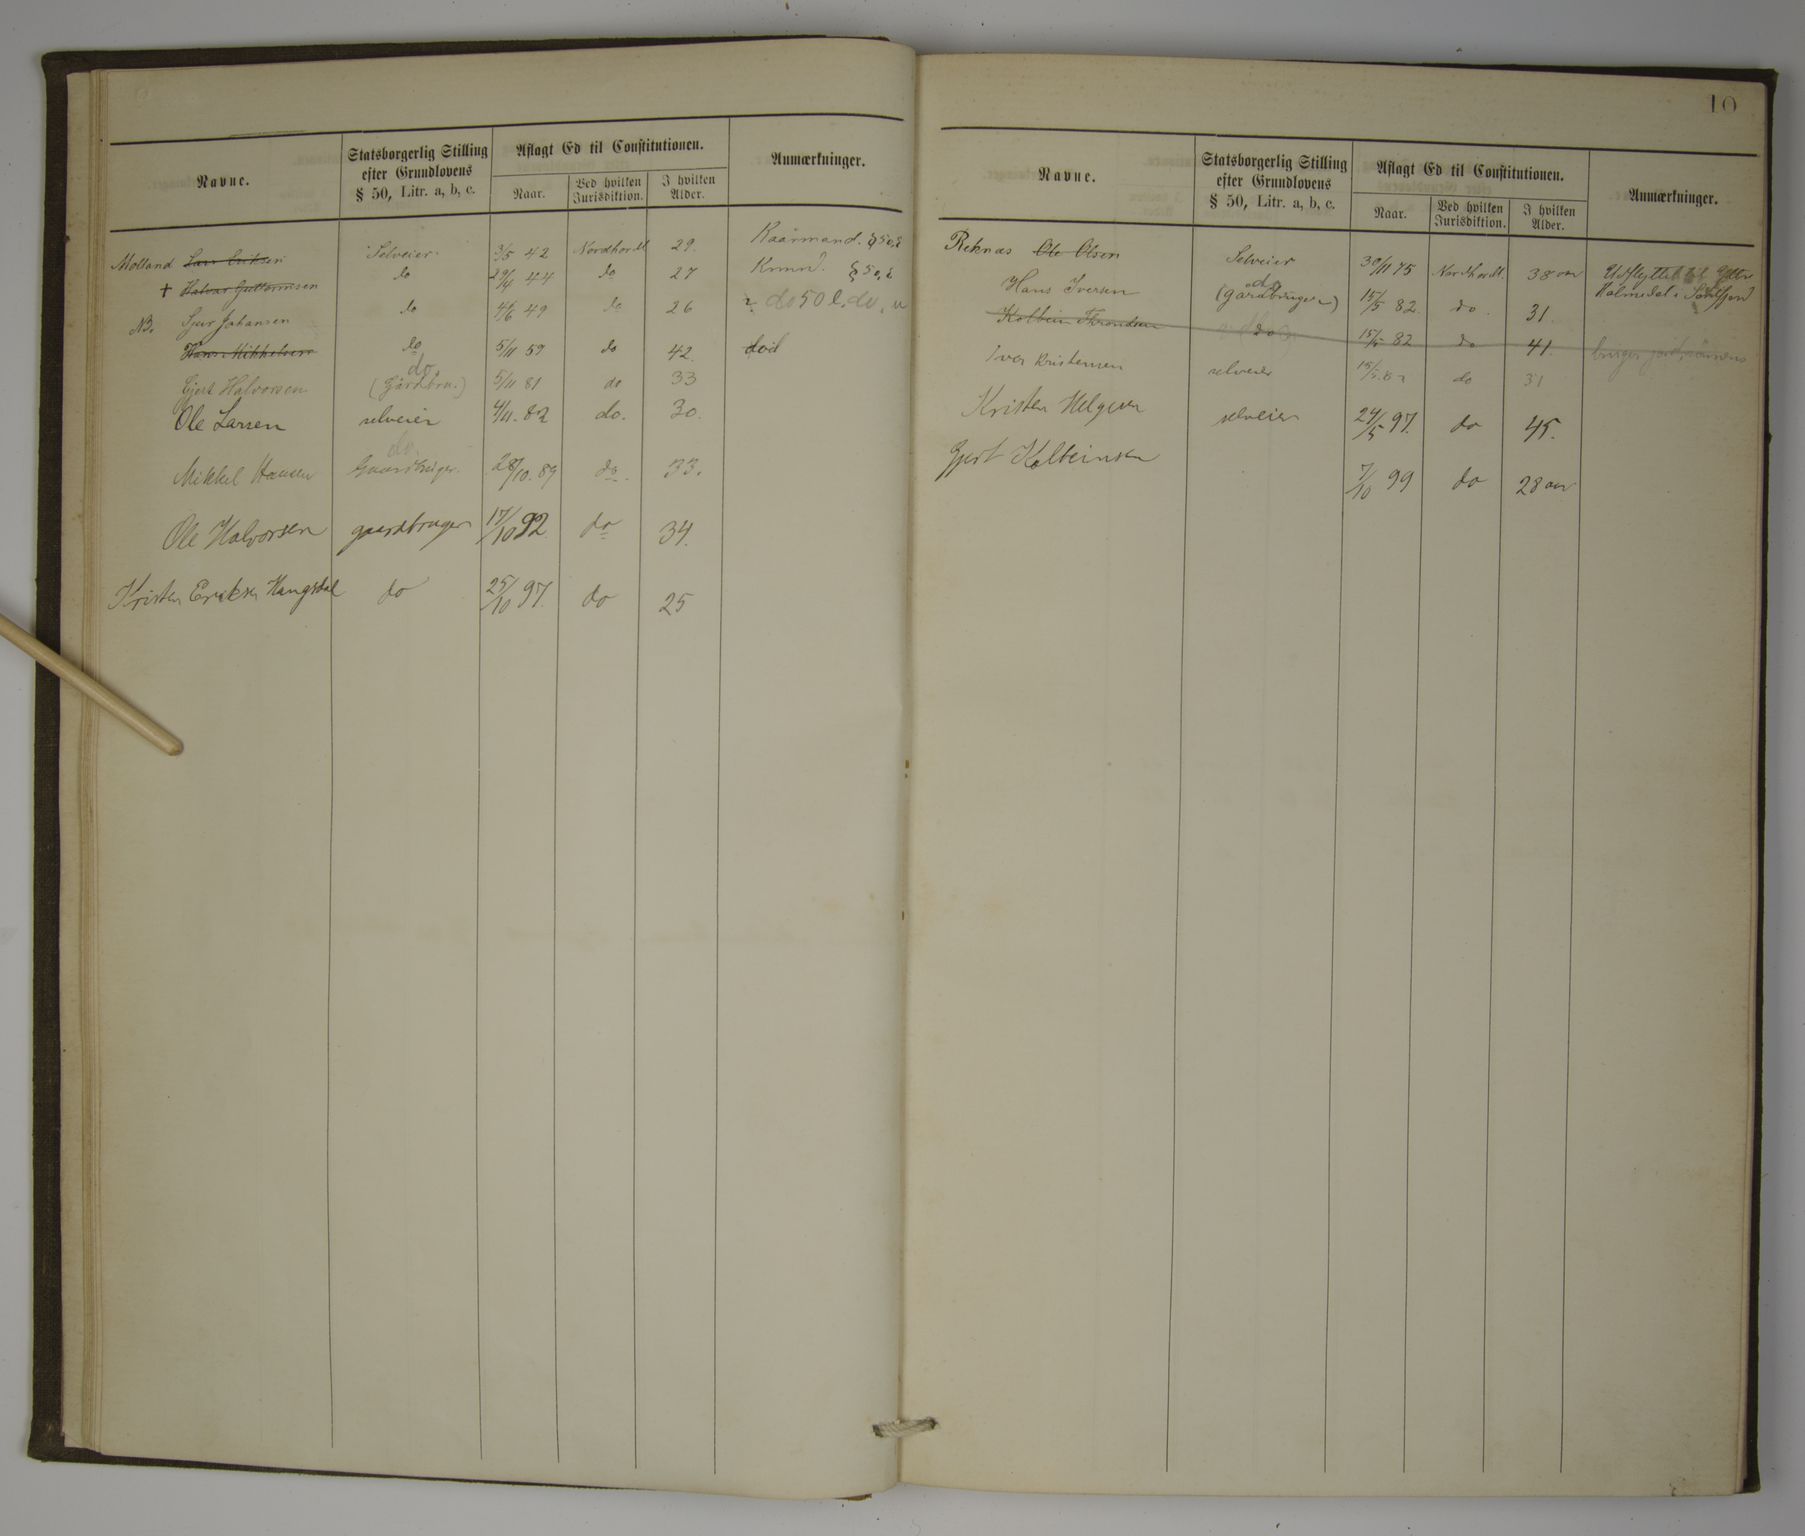 Navne. Statsborgerlig Stilling efter Grundlovens § 50, Litr. a, b, c. Aflagt Ed til Constitutionen. Naar. Ved hvilken Jurisdiktion. I hvilken Alder. Anmærkninger.
Molland Lars Eriksen Selveier 3/5 42 Nordhordl 29. Kaarmand. § 50,
+ Halvor Guttormsen do 29/4 44 do 27 Krmnd. § 50,
NB. Sjur Johansen do 4/6 49 do 26 do 50
Hans Mikkelsen do 5/11 59 do 42. död
Gjert Halvorsen do. (Gårdbru.) 5/11 81 do 33
Ole Larsen selveier 4/11. 82 do. 30.
Mikkel Hansen do. Gaardbruger. 28/10. 89 do. 33.
Ole Halvorsen gaardbruger 17/10 92. do 34.
Kristen Eriksen Haugsdal do 25/10 97. do 25
10
Navne. Statsborgerlig Stilling efter Grundlovens § 50, Litr. a, b, c. Aflagt Ed til Constitutionen. Naar. Ved hvilken Jurisdiktion. I hvilken Alder. Anmærkninger.
Reknas Ole Olsen Selveier 30/11 75 Nordhordl. 38 aar Udflyttet til Yttre
Holmedal i Söndfjord
Hans Iversen do (gårdbruger) 15/5 82. do. 31.
Kolbein Throndsen do 15/5 82 do 41. bruger
Iver Kristensen selveier 15/5.82 do 31
Kristen Helgesen selveier 24/5 97. do 45.
Gjert Kolbeinsen 7/10 99 do 28 aar